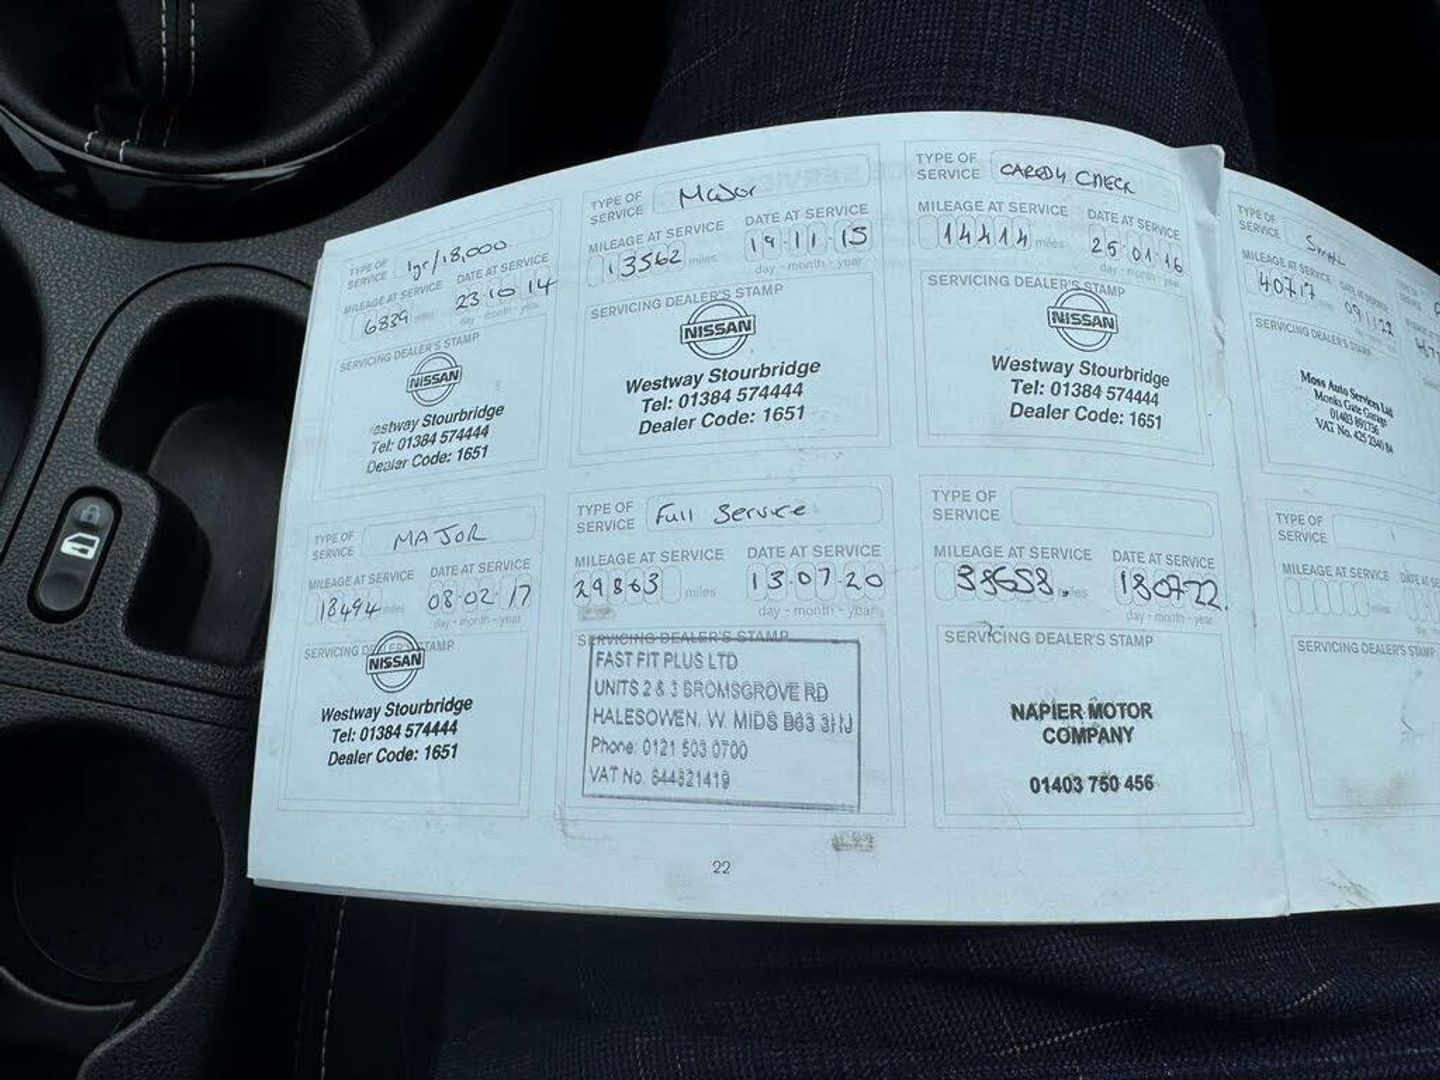 TYPE OF SERVICE 1yr/18,000
MILEAGE AT SERVICE DATE AT SERVICE
6839 miles 23·10·14
day - month - year
SERVICING DEALER'S STAMP
NISSAN
estway Stourbridge
Tel: 01384 574444
Dealer Code: 1651
TYPE OF SERVICE Major
MILEAGE AT SERVICE DATE AT SERVICE
13562 miles 19·11·15
day - month - year
SERVICING DEALER'S STAMP
NISSAN
Westway Stourbridge
Tel: 01384 574444
Dealer Code: 1651
TYPE OF SERVICE CARED4 CHECK
MILEAGE AT SERVICE DATE AT SERVICE
14414 miles 25·01·16
day - month - year
SERVICING DEALER'S STAMP
NISSAN
Westway Stourbridge
Tel: 01384 574444
Dealer Code: 1651
TYPE OF SERVICE Small
MILEAGE AT SERVICE DATE AT SERVICE
40717
SERVICING DEALER'S STAMP
Moss Auto Services Ltd
Monks Gate Garage
01403 891736
VAT No. 425 2340 84
TYPE OF SERVICE MAJOR
MILEAGE AT SERVICE DATE AT SERVICE
18494 miles 08·02·17
day - month - year
SERVICING DEALER'S STAMP
NISSAN
Westway Stourbridge
Tel: 01384 574444
Dealer Code: 1651
TYPE OF SERVICE Full Service
MILEAGE AT SERVICE DATE AT SERVICE
29863 miles 13·07·20
day - month - year
SERVICING DEALER'S STAMP
FAST FIT PLUS LTD
UNITS 2 & 3 BROMSGROVE RD
HALESOWEN. W. MIDS B63 3HJ
Phone: 0121 503 0700
VAT No. 844821419
TYPE OF SERVICE
MILEAGE AT SERVICE DATE AT SERVICE
38658 miles 180722
day - month - year
SERVICING DEALER'S STAMP
NAPIER MOTOR
COMPANY
01403 750 456
TYPE OF SERVICE
MILEAGE AT SERVICE
SERVICING DEALER'S STAMP
22